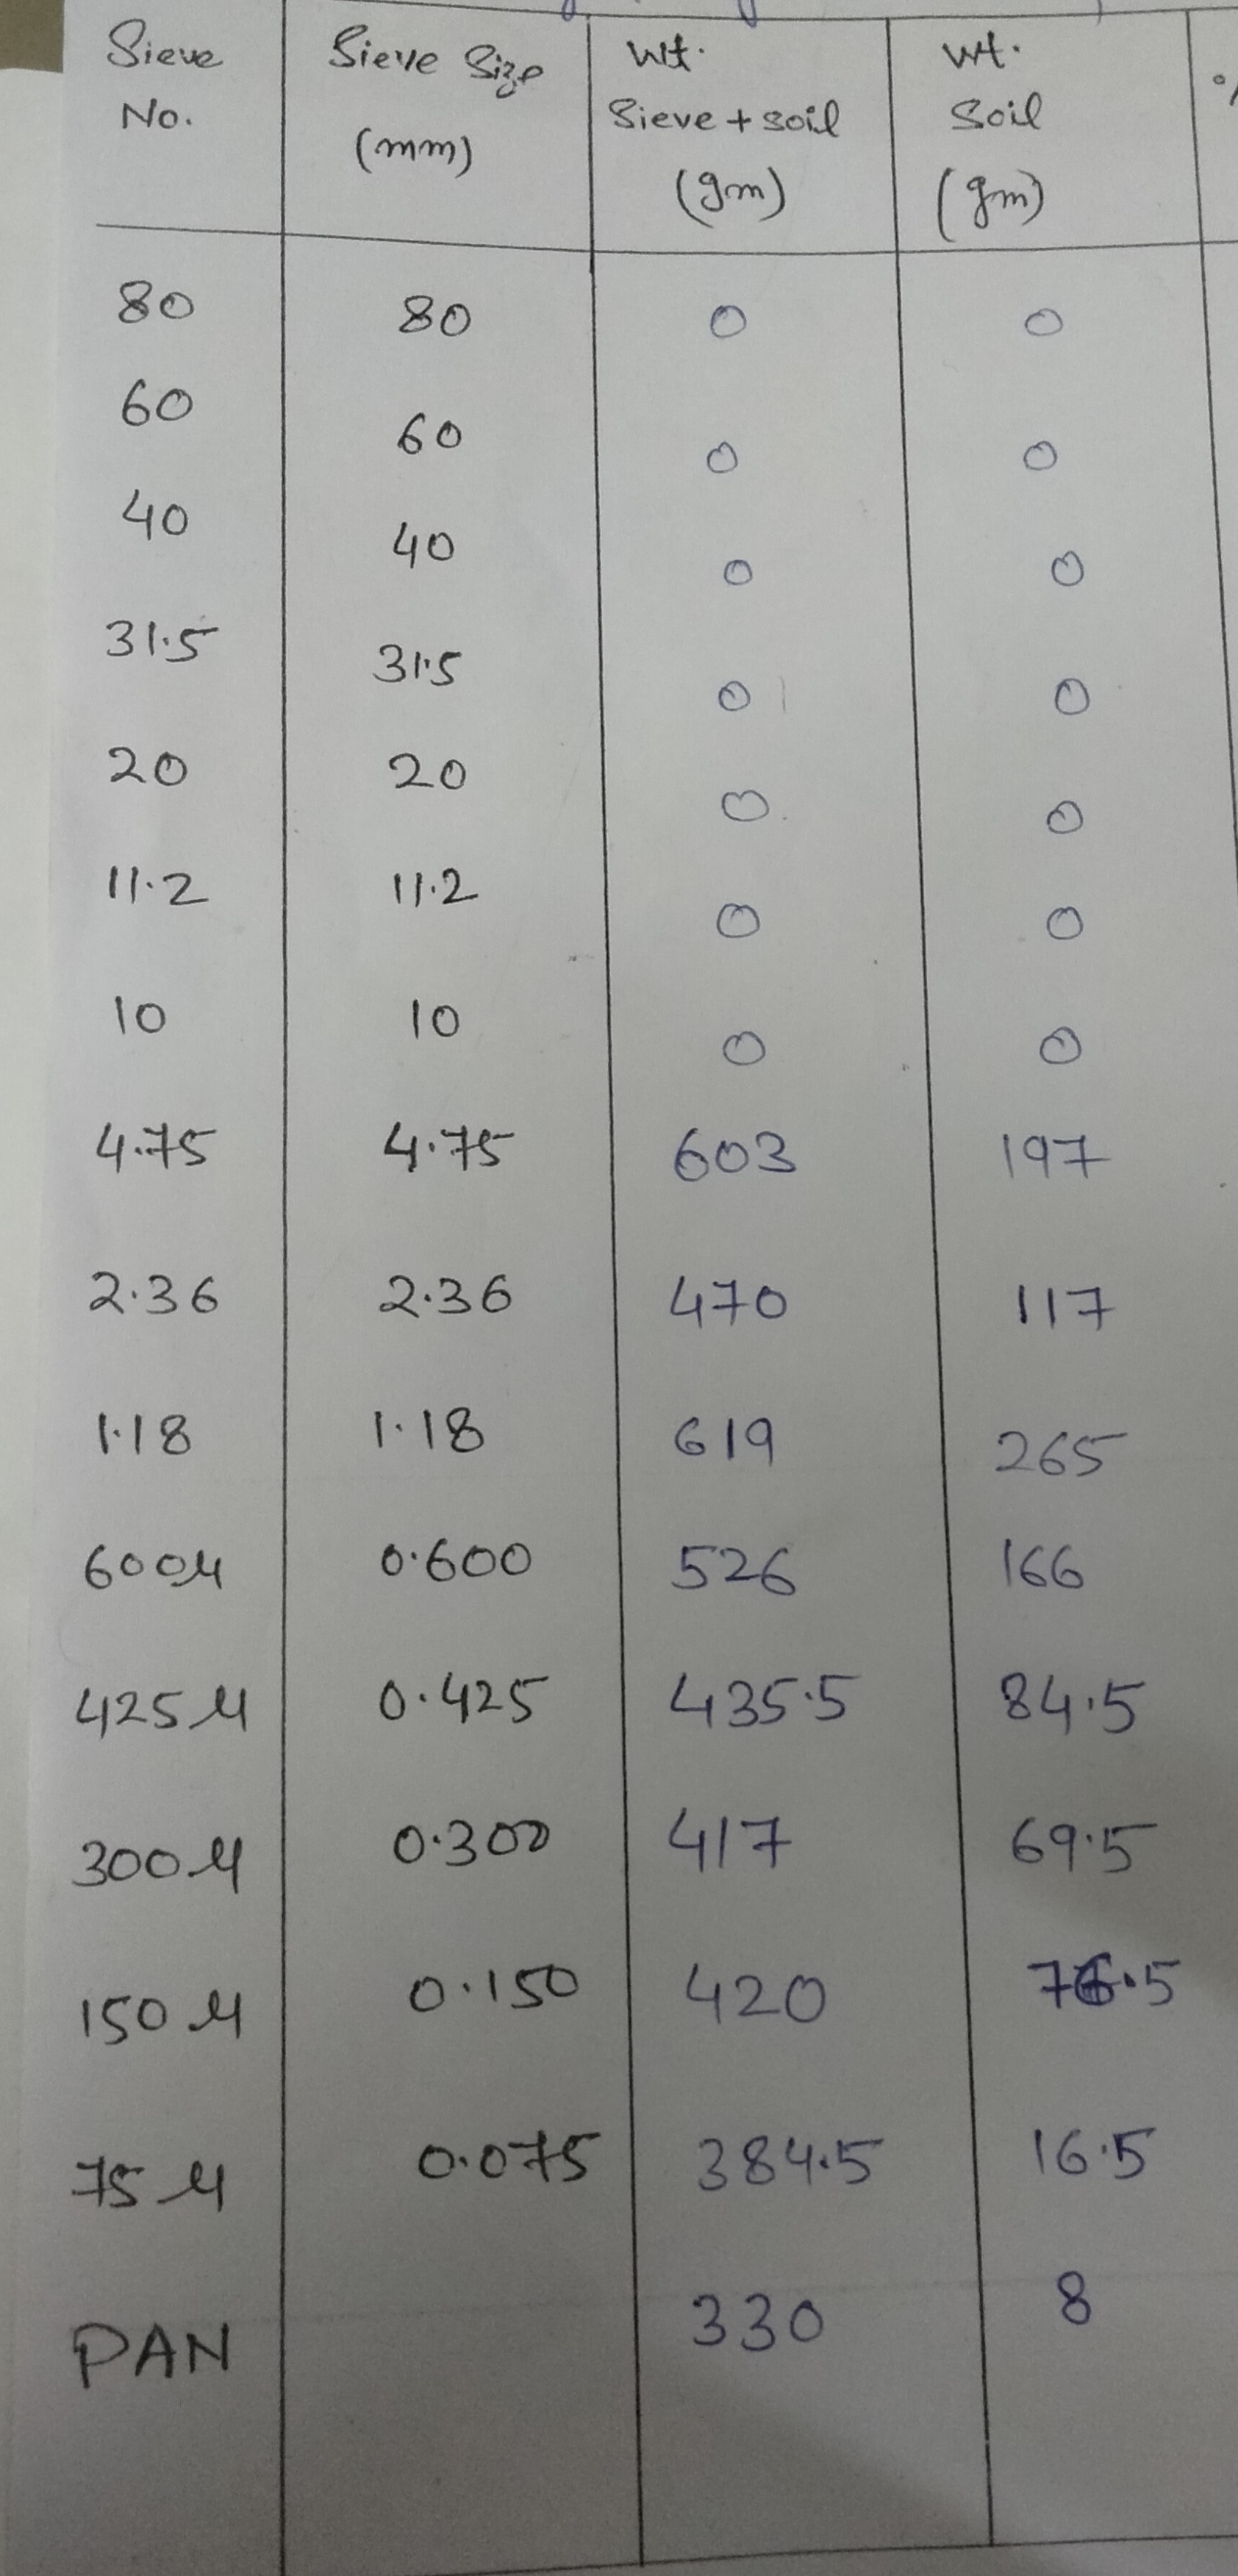 Sieve No. | Sieve Size (mm) | Wt. Sieve + soil (gm) | Wt. Soil (gm) | %
80 | 80 | 0 | 0
60 | 60 | 0 | 0
40 | 40 | 0 | 0
31.5 | 31.5 | 0 | 0
20 | 20 | 0 | 0
11.2 | 11.2 | 0 | 0
10 | 10 | 0 | 0
4.75 | 4.75 | 603 | 197
2.36 | 2.36 | 470 | 117
1.18 | 1.18 | 619 | 265
600μ | 0.600 | 526 | 166
425μ | 0.425 | 435.5 | 84.5
300μ | 0.300 | 417 | 69.5
150μ | 0.150 | 420 | 76.5
75μ | 0.075 | 384.5 | 16.5
PAN | 330 | 8